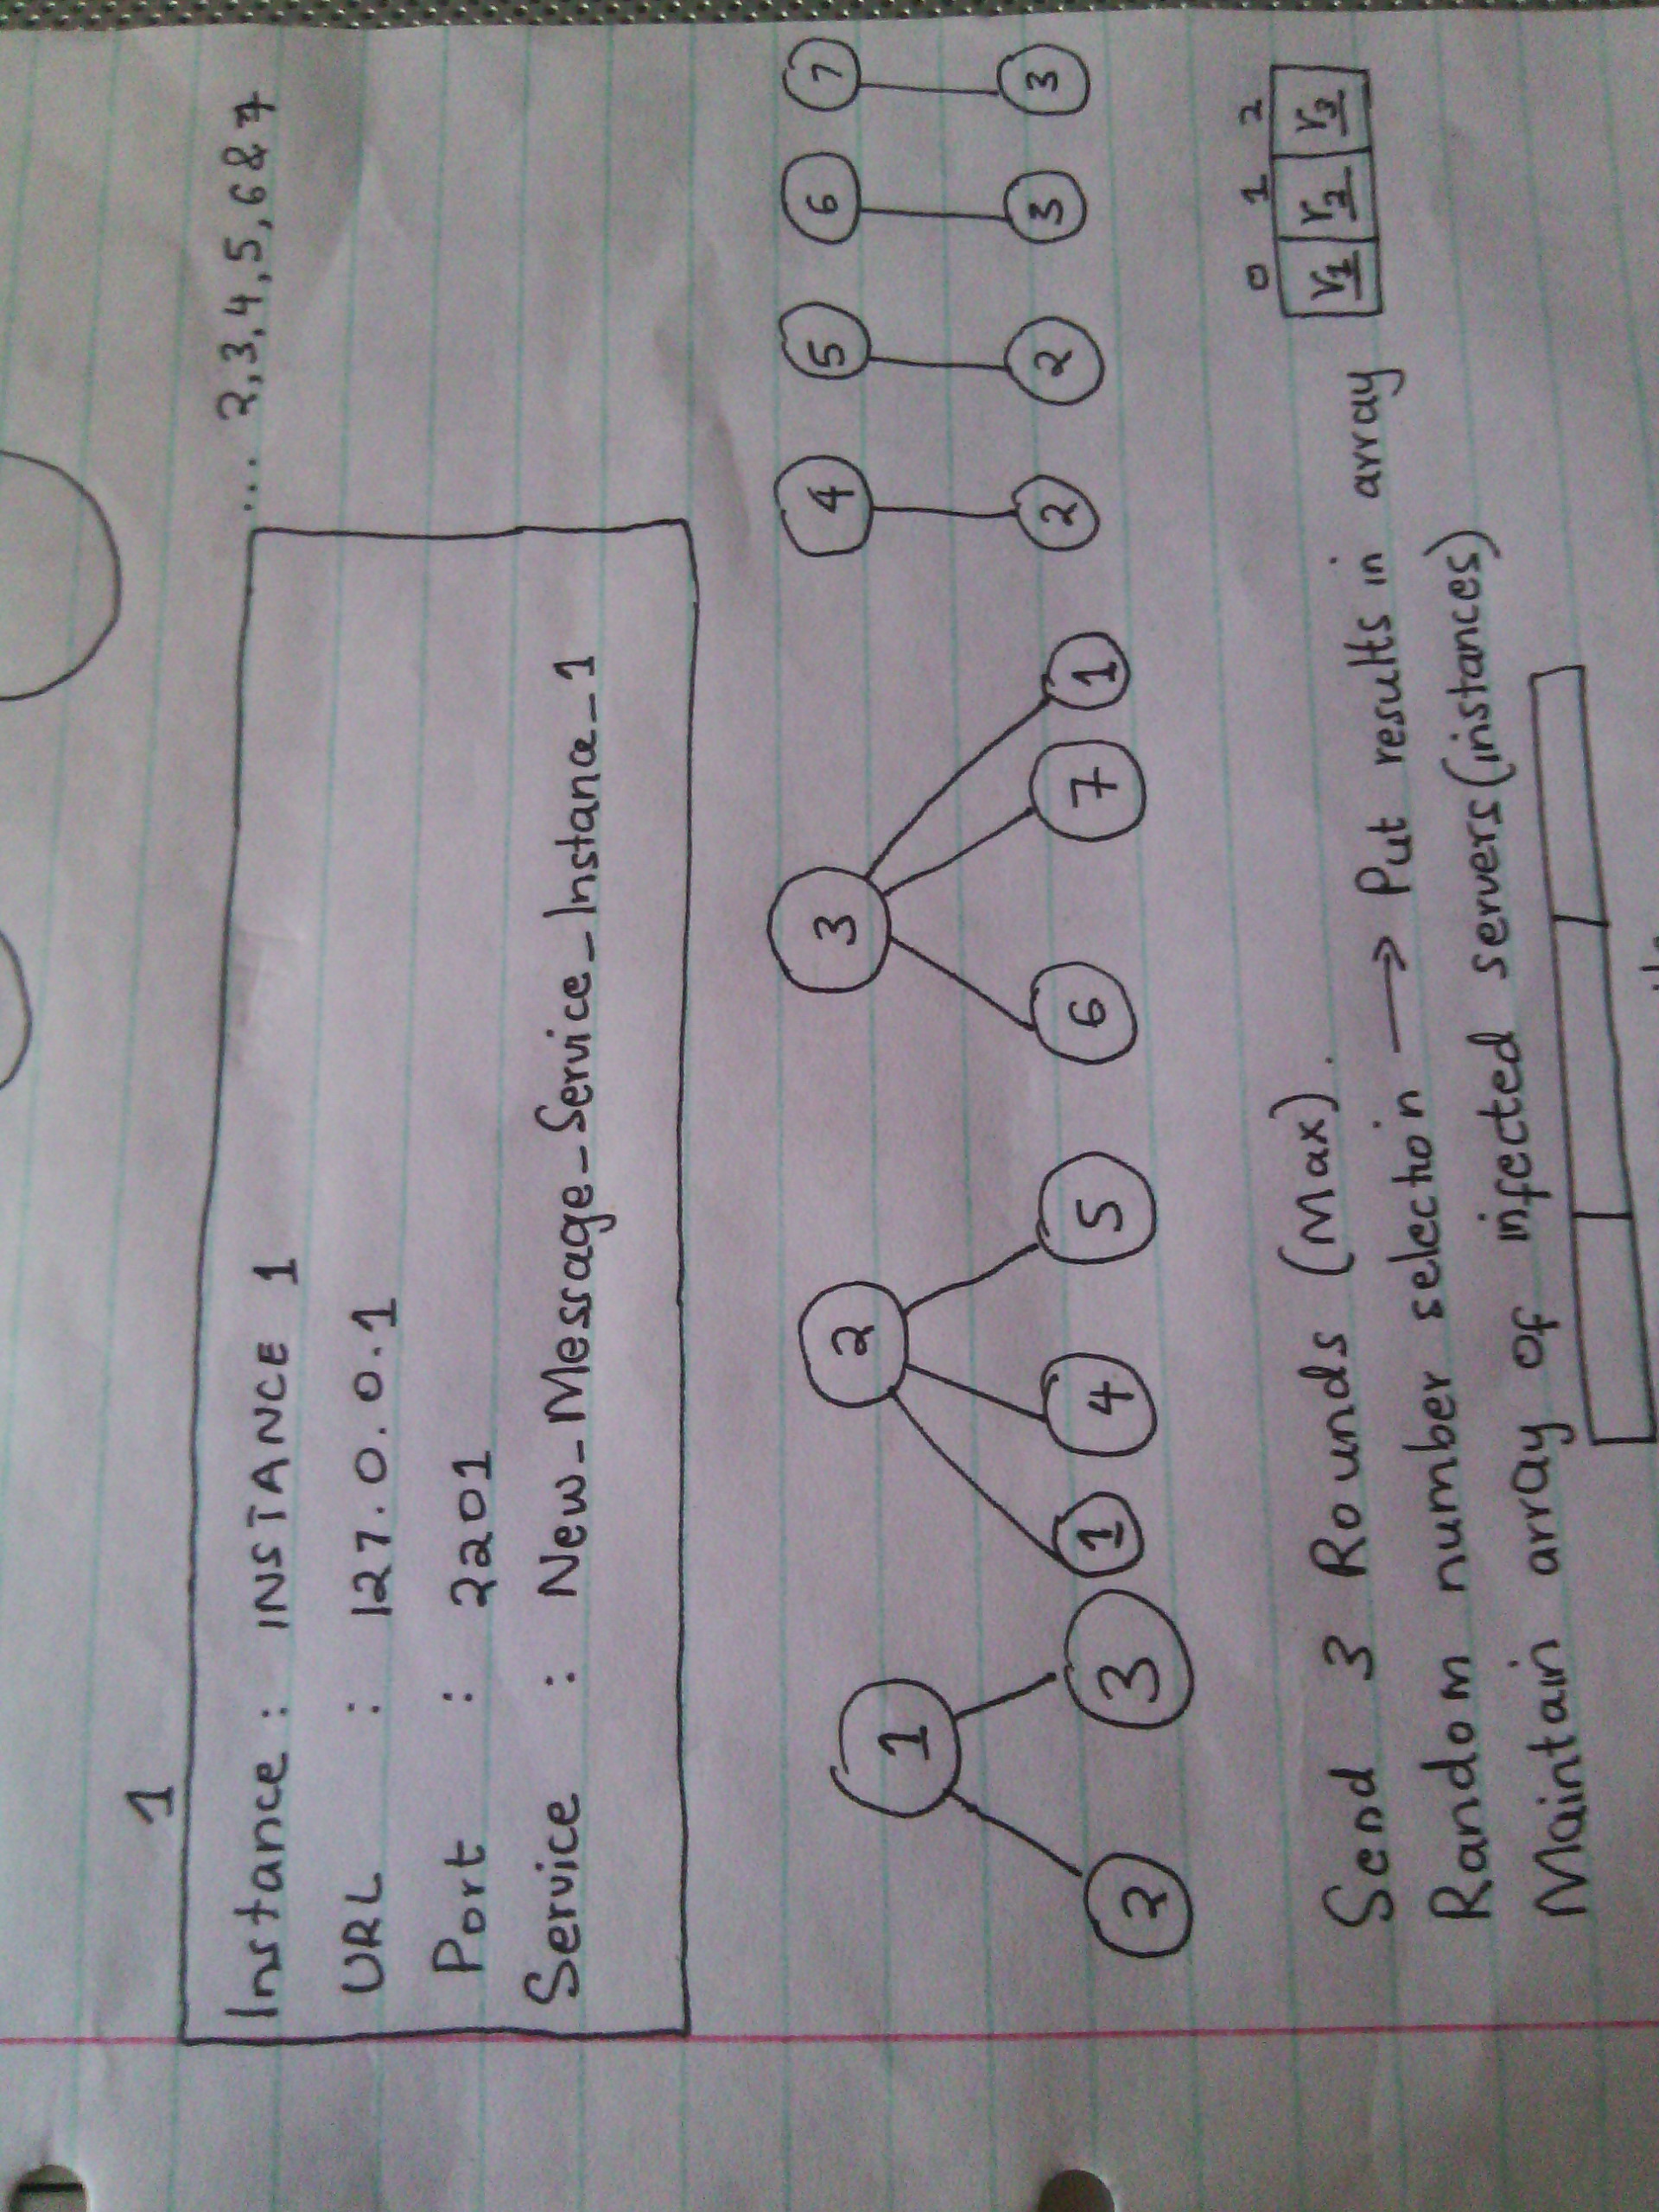 1
Instance : INSTANCE 1 .... 2,3,4,5,6 & 7
URL : 127.0.0.1
Port : 2201
Service : New_Message_Service_Instance_1
1 2 3 4 5 6 7
2 3 1 4 5 6 7 1 2 2 3 3
Send 3 Rounds (Max).
0 1 2
r1 r2 r3
Random number selection → Put results in array
Maintain array of infected servers (instances)